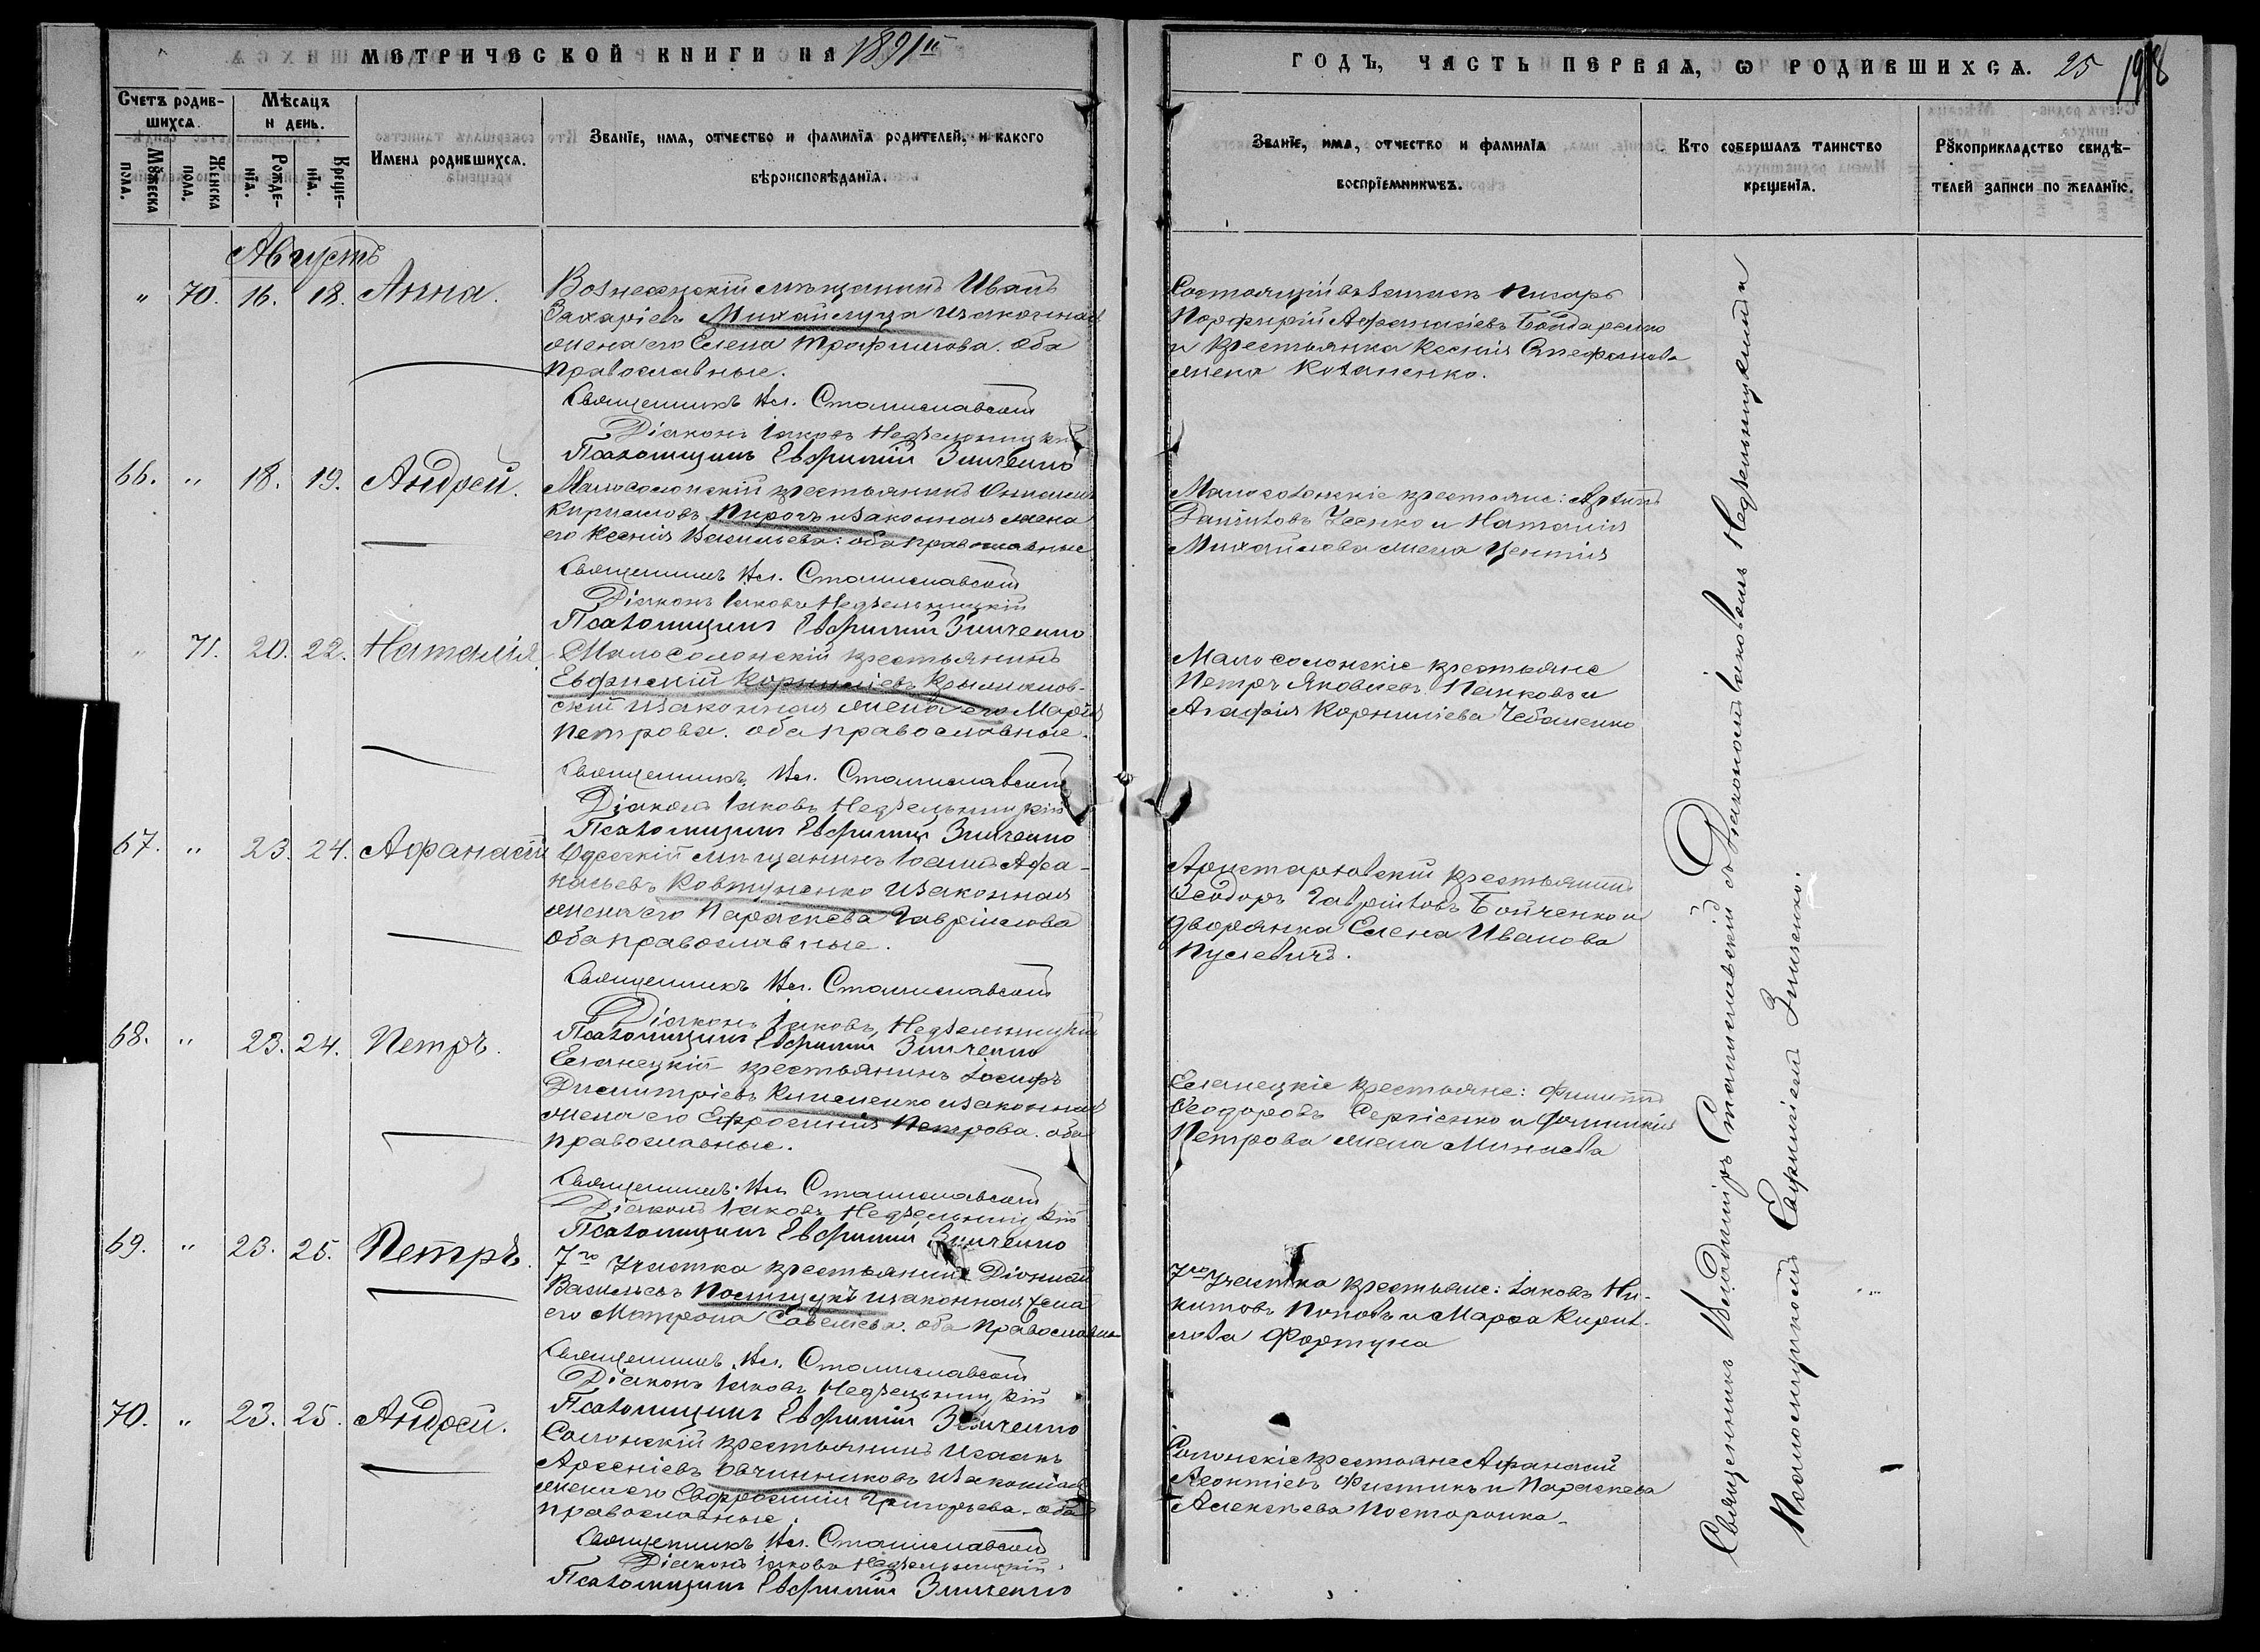 МЕТРИЧЕСКОЙ КНИГИ НА 1891й
ГОДЪ, ЧАСТЬ ПЕРВАЯ, Ѡ РОДИВШИХСЯ. 25
Счетъ родив-
шихся.
Мꙋжеска
пола.
Женска
пола.
Мѣсяцъ
и день.
Рожде-
нїя.
Креще-
нїя.
Имена родившихся.
Званїе, имя, отчество и фамилїя родителей, и какого
вѣроисповѣданїя.
Званїе, имя, отчество и фамилїя
воспрїемниковъ.
Кто совершалъ таинство
крещенїя.
Рꙋкоприкладство свидѣ-
телей записи по желанїю.
Августъ
" 70. 16. 18. Анна.
Вознесенскій мѣщанинъ Иванъ
Захаріевъ Михайлуца и законная
жена его Елена Трофимова. оба
православные.
Священникъ Вл. Станиславскій
Діаконъ Іаковъ Недзельницкій
Псаломщикъ Евфимій Зинченко
Состоящій въ запасѣ писарь
Порфирій Афанасіевъ Бондаренко
и крестьянка Ксенія Стефанова
жена Козаненко.
66. " 18. 19. Андрей.
Малосолонскій крестьянинъ
Кириловъ Пирогъ и законная жена
его Ксенія Васильева: оба православные
Священникъ Вл. Станиславскій
Діаконъ Іаковъ Недзельницкій
Псаломщикъ Евфимій Зинченко
Малосолонскіе крестьяне:
Даниловъ и Наталія
Михайлова жена
" 71. 20. 22. Наталія.
Малосолонскій крестьянинъ
Евфимій Корниліевъ Крыжанов-
скій и законная жена его Марія
Петрова. оба православные.
Священникъ Вл. Станиславскій
Діаконъ Іаковъ Недзельницкій
Псаломщикъ Евфимій Зинченко
Малосолонскіе крестьяне
Петръ Яковлевъ Панковъ и
Агафія Корниліева Чебаненко
67. " 23. 24. Афанасій
Одесскій мѣщанинъ Іоаннъ Афа-
насьевъ Ковтуненко и законная
жена его Параскева Гавріилова
оба православные.
Священникъ Вл. Станиславскій
Діаконъ Іаковъ Недзельницкій
Псаломщикъ Евфимій Зинченко
крестьянинъ
Ѳеодоръ Гавріиловъ Бойченко и
дворянка Елена Иванова
Пуслевичъ.
68. " 23. 24. Петръ.
Еланецкій крестьянинъ Іосифъ
Димитріевъ Клименко и законная
жена его Ефросинія Петрова. оба
православные.
Священникъ Вл. Станиславскій
Діаконъ Іаковъ Недзельницкій
Псаломщикъ Евфимій Зинченко
Еланецкіе крестьяне: Филиппъ
Ѳеодоровъ Сергіенко и
Петрова жена Минаева
69. " 23. 25. Петръ.
7го участка крестьянинъ Діонисій
Васильевъ Полищукъ и законная жена
его Матрона Савеліева. оба православные
Священникъ Вл. Станиславскій
Діаконъ Іаковъ Недзельницкій
Псаломщикъ Евфимій Зинченко
7го участка крестьяне: Іаковъ Ни-
китовъ Поповъ и Марѳа Кирил-
лова Фортуна
70. " 23. 25. Андрей.
Солонскій крестьянинъ Исаакъ
Арсеніевъ Овчинниковъ и законная
жена его Евфросинія Григорьева. оба
православные.
Священникъ Вл. Станиславскій
Діаконъ Іаковъ Недзельницкій.
Псаломщикъ Евфимій Зинченко
Солонскіе крестьяне Афанасій
Леонтіевъ Фистикъ и Параскева
Алексѣева Посторонка.
Священникъ Владиміръ Станиславскій съ Діакономъ Іаковомъ Недзельницкимъ и
Псаломщикомъ Евфиміемъ Зинченко.